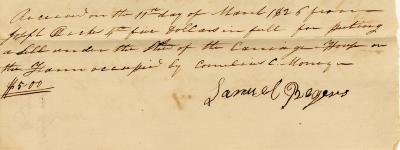 Received on the 11th day of March 1826 from
Joseph 4th five Dollars in full for putting
a sill under the of the Carriage House on
the Farm occupied by Cornelius C.
$5.00
Samuel Rogers